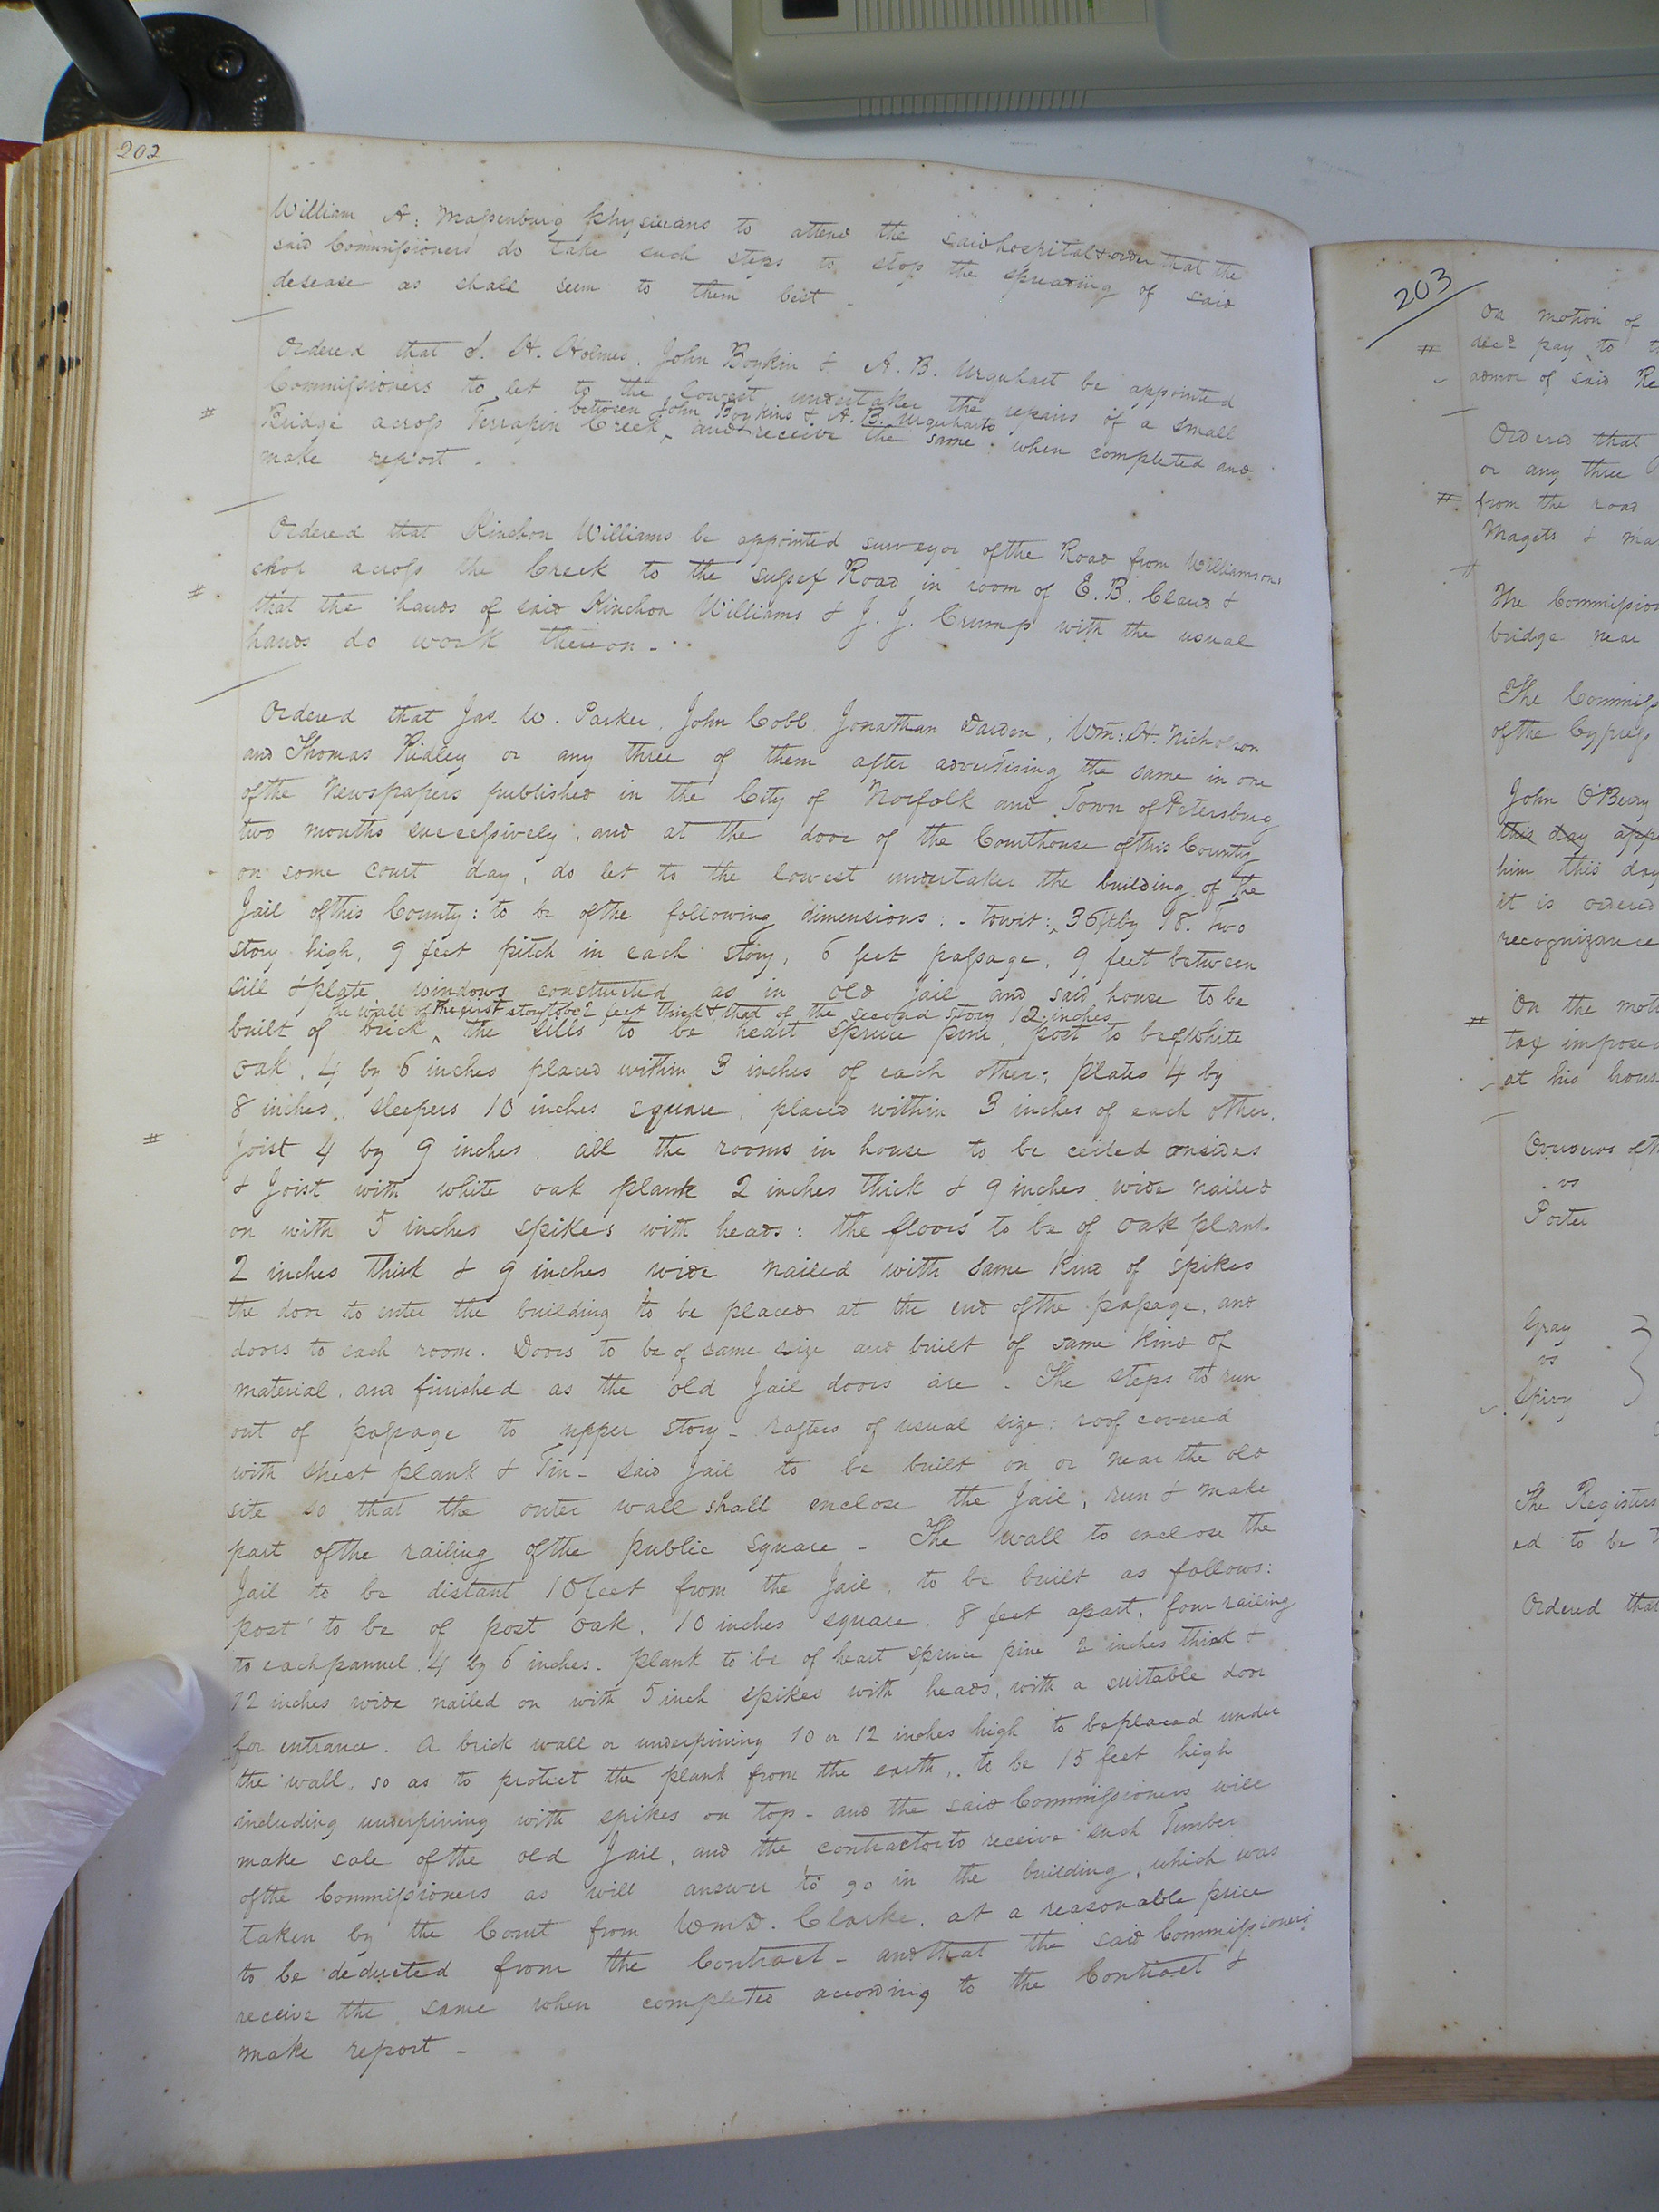 202
William A. Massenburg physicians to attend the said hospital & order that the
said Commissioners do take such steps to stop the spreading of said
desease as shall seem to them best -
Ordered that S. H. Holmes, John Boykin & A. B. Urquhart be appointed
Commissioners to let to the lowest undertaker the repairs of a small
between John Boykins & A. B. Urquharts
# Bridge across Terrapin Creek ^ and receive the same when completed and
make report -
Ordered that Kinchon Williams be appointed surveyor of the Road from Williamsons
across the Creek to the Sussex Road in room of E. B. Claud &
# that the hands of said Kinchon Williams & J. J. Crump with the usual
hands do work thereon -
Ordered that Jas. W. Parker, John Cobb, Jonathan Darden, Wm: H. Nicholson
and Thomas Ridley or any three of them after advertising the same in one
of the Newspapers published in the City of Norfolk and Town of Petersburg
two months successively, and at the door of the Courthouse of this County
on some court day, do let to the lowest undertaker the building of the
Jail of this County: to be of the following dimensions: - towit: 36 ft by 18. Two
story high, 9 feet pitch in each story, 6 feet passage, 9 feet between
sill & plate, windows constructed as in old jail and said house to be
the wall of the first story to be 2 feet thick & that of the second story 12 inches
built of brick ^ the sills to be heart spruce pine, post to be of white
oak, 4 by 6 inches placed within 3 inches of each other; plates 4 by
8 inches, sleepers 10 inches square, placed within 3 inches of each other.
# Joist 4 by 9 inches, all the rooms in house to be ceiled on sides
& Joist with white oak plank 2 inches thick & 9 inches wide nailed
on with 5 inches spikes with heads: the floors to be of oak plank
2 inches thick & 9 inches wide nailed with same kind of spikes
the door to enter the building to be placed at the end of the passage, and
doors to each room. Doors to be of same size and built of same kind of
material, and finished as the old Jail doors are - The steps to run
out of passage to upper story - rafters of usual size: roof covered
with sheet plank & Tin - said Jail to be built on or near the old
site so that the outer wall shall enclose the Jail, run & make
part of the railing of the public square - The wall to enclose the
Jail to be distant 10 feet from the Jail, to be built as follows:
post to be of post oak, 10 inches square, 8 feet apart, four railing
to each pannel 4 by 6 inches - plank to be of heart spruce pine 2 inches thick &
12 inches wide nailed on with 5 inch spikes with heads, with a suitable door
for entrance. A brick wall or underpining 10 or 12 inches high to be placed under
the wall, so as to protect the plank from the earth, to be 15 feet high
including underpining with spikes on top - and the said Commissioners will
make sale of the old Jail, and the contractor to receive such Timber
of the Commissioners as will answer to go in the building; which was
taken by the Court from Wm D. Clarke, at a reasonable price
to be deducted from the Contract - and that the said Commissioners
receive the same when completed according to the Contract &
make report -
203
On motion of
# decd pay to
admor of said Re
Ordered that
or any three
# from the road
Magets & Ma
The Commission
bridge near
The Commiss
of the Cypress
John O'Berry
this day appe
him this day
it is ordered
recognizance
On the moti
# tax imposed
at his hous
Overseers of th
vs
Porter
Gray
vs
Spivy
The Registers
ed to be
Ordered that